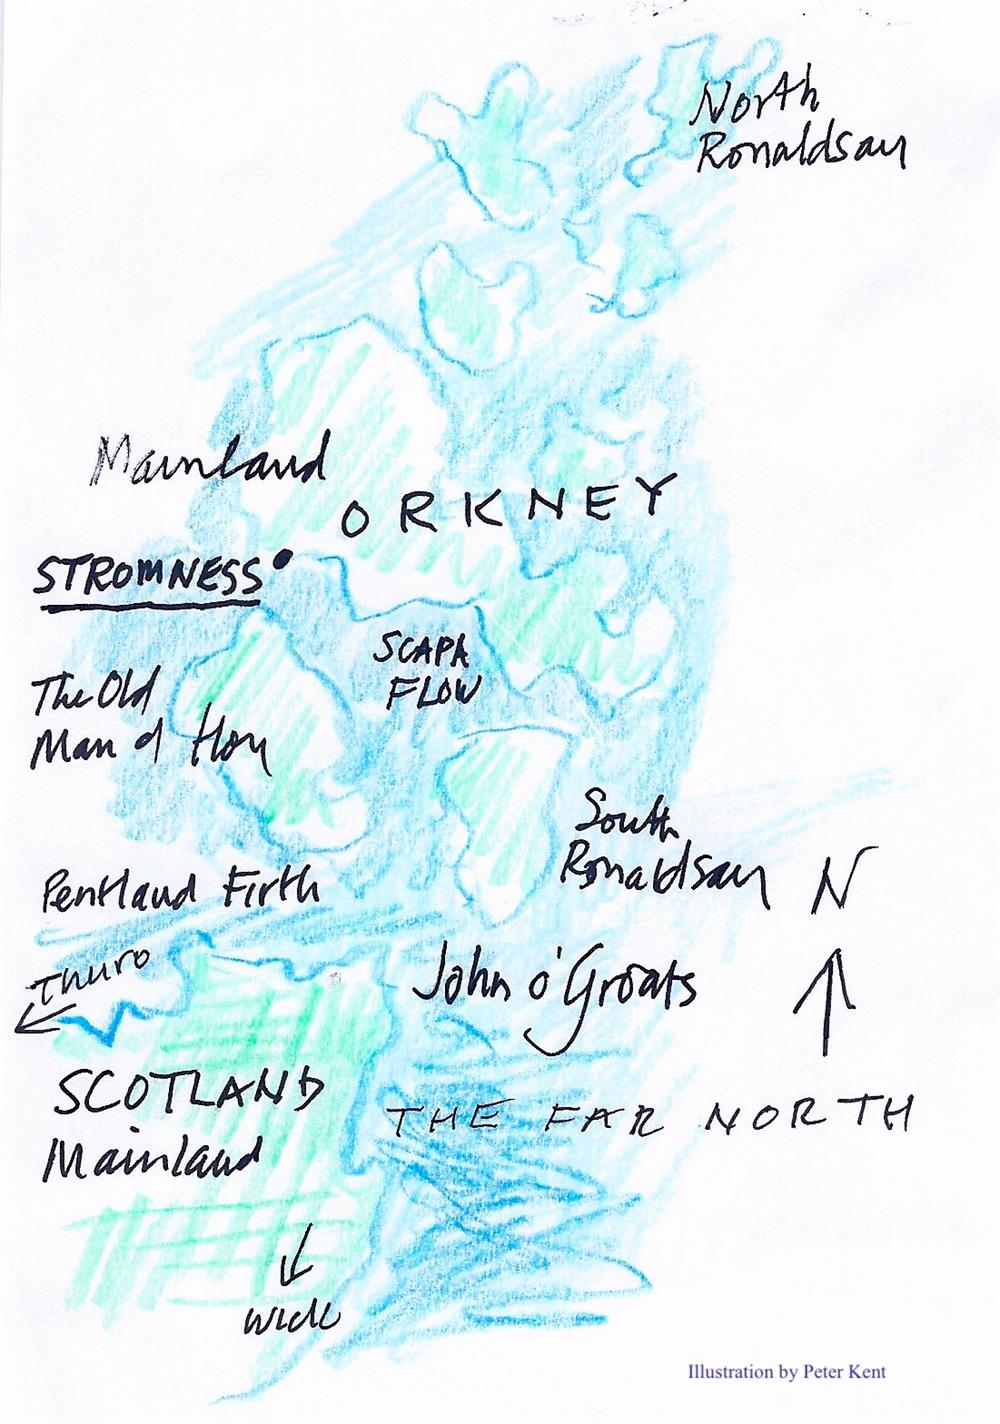 North
Ronaldsay
Mainland
ORKNEY
STROMNESS
SCAPA
FLOW
The Old
Man of Hoy
South
Ronaldsay
Pentland Firth
N
Thurso
John o'Groats
SCOTLAND
Mainland
THE FAR NORTH
Wick
Illustration by Peter Kent